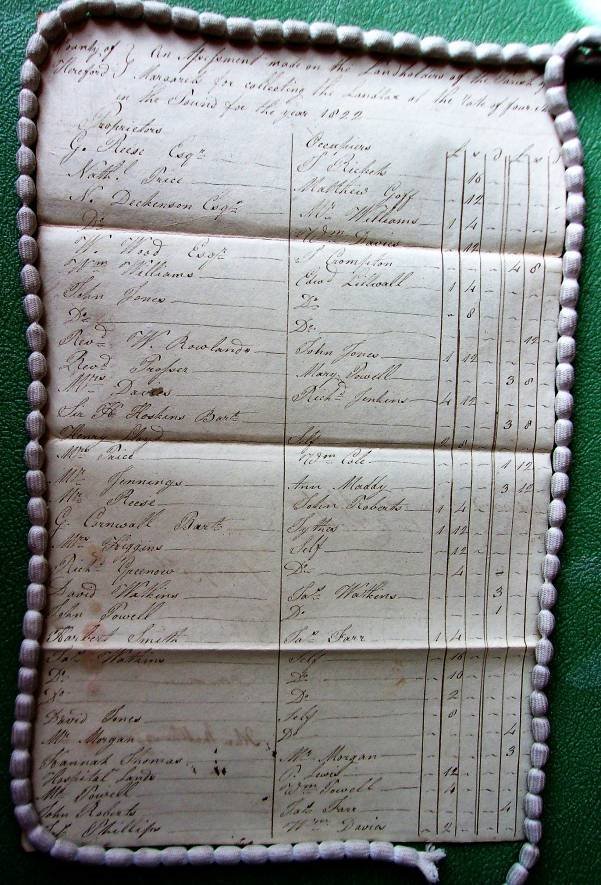 County of } An Assessment made on the Landholders of the Parish of
Hereford } for collecting the Landtax at the Rate of four
in the Pound for the year 1822
Proprietors Occupiers £ s d £ s d
G. Reese Esqr J. Ricketts 16
Nathl Price Matthew Goff 12
N. Deckenson Esqr Mr Williams 1 4
Do Wm Davies 12
W. Wood Esqr J Crompton 4 8
Wm Williams Edwd Lilwall 1 4
John Jones Do 8
Do Do 12
Revd W. Rowlands John Jones 1 12
Revd Prosser Mary Powell 3 8
Mrs Davies Richd Jenkins 4 12
Sir H Hoskins Bart 3 8
Henry Self 2 8
Mrs Price Wm Cole 1 12
Mr Jennings Ann Maddy 3 12
Mr Reese John Roberts 1 4
G. Cornwall Bart 1 12
Mrs Higgins Self 12
Richd Greenow Do 4
David Watkins Jas Watkins 3
John Powell Do 1
Harbert Smith Jas Farr 1 4
Jas Watkins Self 16
Do Do 16
Do Do 2
David Jones Self 8
Mr Morgan Do 4
Hannah Thomas Mr Morgan 3
Hospital Lands P. Lewis 12
Mr Powell Wm Powell 4
John Roberts Jas Farr 4
Phillips Wm Davis 2